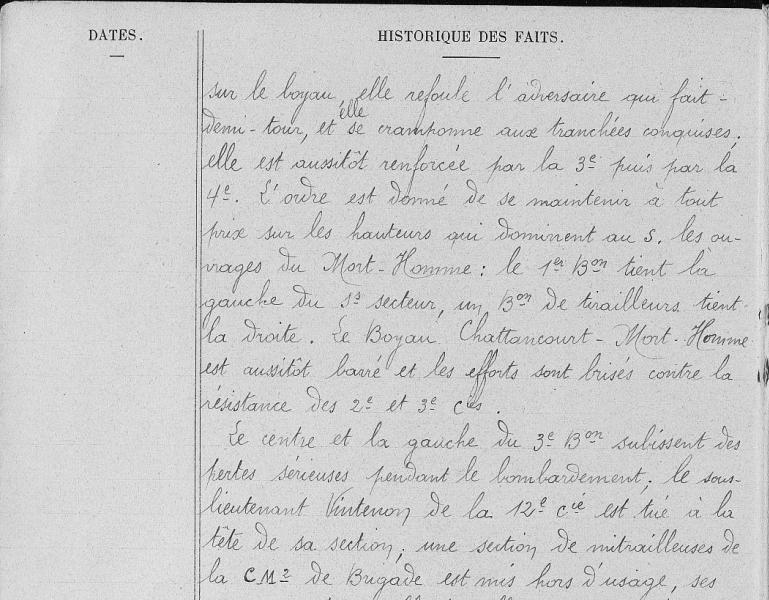 DATES.
HISTORIQUE DES FAITS.
sur le boyau, elle refoule l'adversaire qui fait-
demi-tour, et elle se cramponne aux tranchées conquises;
elle est aussitôt renforcée par la 3e puis par la
4e. L'ordre est donné de se maintenir à tout
prix sur les hauteurs qui dominent au S. les ou-
vrages du Mort-Homme: le 1er Bon tient la
gauche du secteur, un Bon de tirailleurs tient
la droite. Le Boyau Chattancourt-Mort-Homme
est aussitôt barré et les efforts sont brisés contre la
résistance des 2e et 3e Cies.
Le centre et la gauche du 3e Bon subissent des
pertes sérieuses pendant le bombardement; le sous-
lieutenant Vintenon de la 12e Cie est tué à la
tête de sa section; une section de mitrailleuses de
la CM2 de Brigade est mis hors d'usage, ses